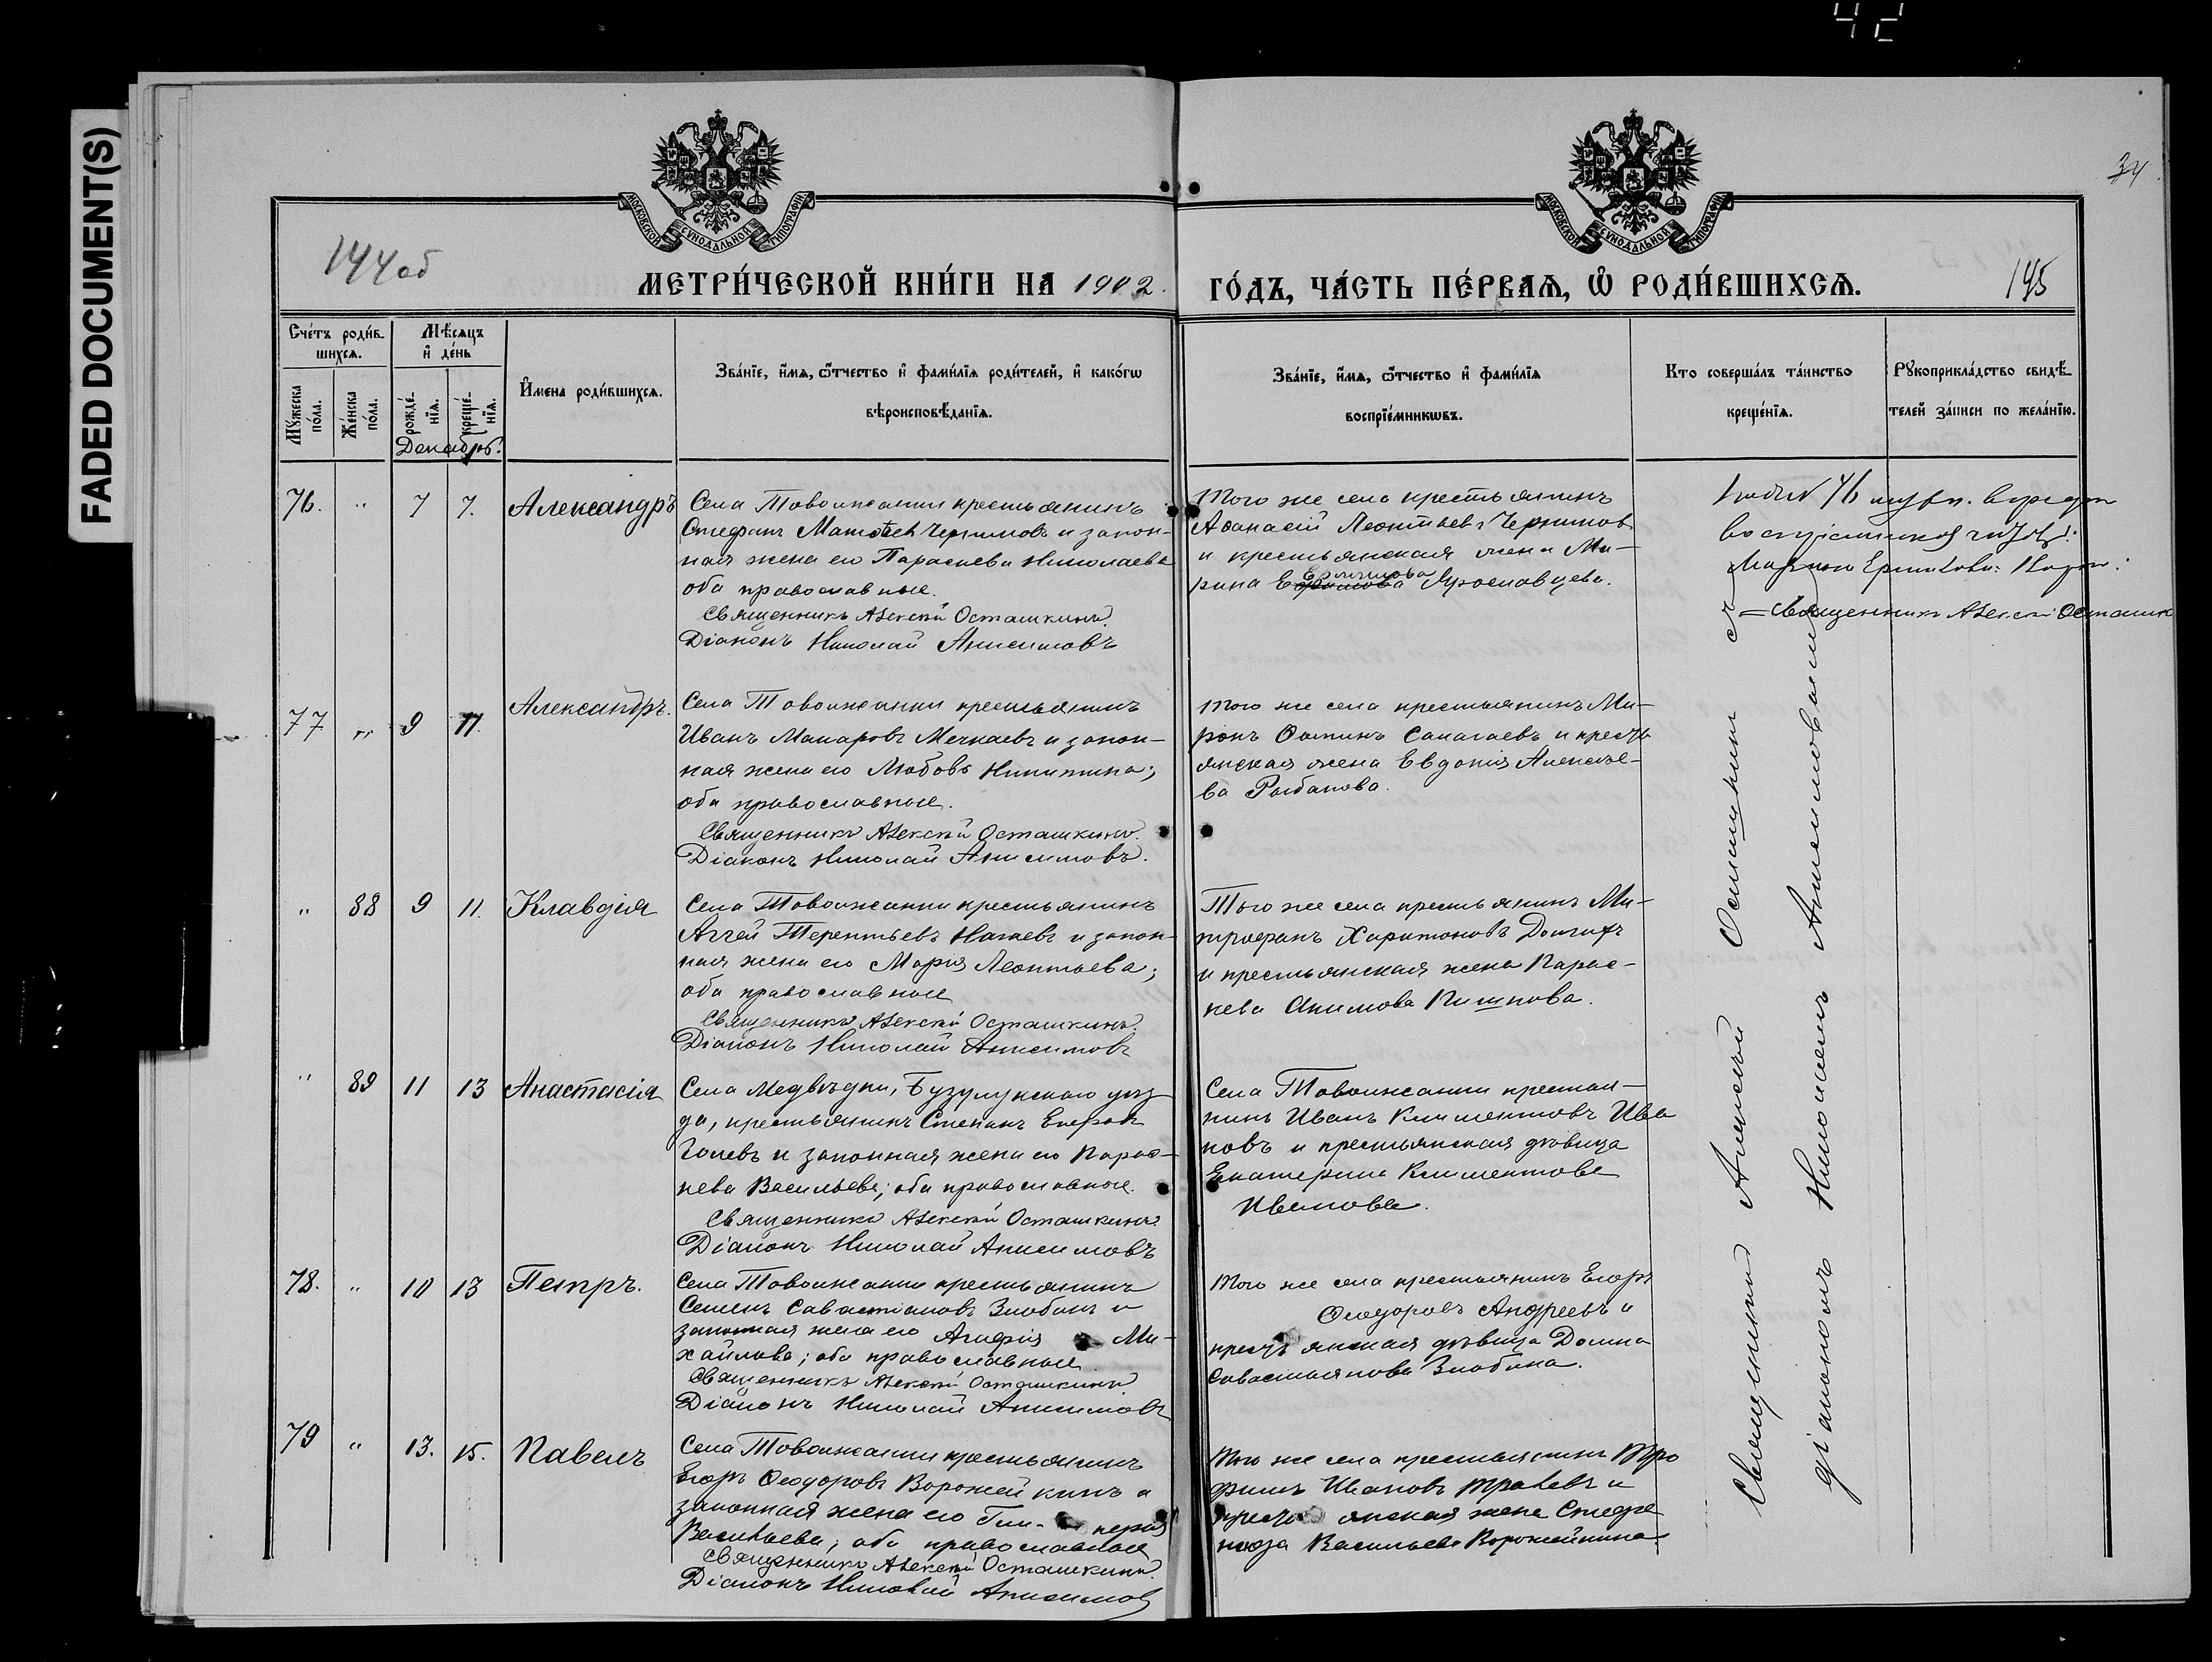 42
FADED DOCUMENT(S)
34
144 об
145
МОСКОВСКОЙ СѴНОДАЛЬНОЙ ТИПОГРАФІИ
МОСКОВСКОЙ СѴНОДАЛЬНОЙ ТИПОГРАФІИ
МЕТРИ́ЧЕСКОЙ КНИ́ГИ НА 1902. ГО́ДЪ, ЧА́СТЬ ПЕ́РВАѦ, Ѽ РОДИ́ВШИХСѦ.
Сче́тъ роди́в-
шихсѧ.
Мѣ́сѧцъ
и҆ де́нь
Мꙋ́жеска
по́ла.
Же́нска
по́ла.
рожде́-
нїѧ.
креще́-
нїѧ.
Декабрь.
И҆мена роди́вшихсѧ.
Зва́нїе, и҆́мѧ, ѻ҆́тчество и҆ фами́лїѧ роди́телей, и҆ како́гѡ
вѣроисповѣ́данїѧ.
Зва́нїе, и҆́мѧ, ѻ҆́тчество и҆ фами́лїѧ
воспрїе́мникѡвъ.
Кто соверша́лъ та́инство
креще́нїѧ.
Рꙋкоприкла́дство свидѣ́-
телей за́писи по жела́нїю.
76. " 7 7. Александръ
Села Таволжанки крестьянинъ
Стефанъ Матвѣевъ Черниковъ и закон-
ная жена его Параскева Николаева
оба православные.
Священникъ Алексѣй Осташкинъ.
Діаконъ Николай Анисимовъ
Того же села крестьянинъ
Аѳанасій Леонтьевъ Черников
и крестьянская жена Ма-
рина Ермилова Ярославцева.
Марина Ермилова
= Священникъ Алексѣй Осташк
77 " 9 11. Александръ.
Села Таволжанки крестьянинъ
Иванъ Макаровъ Мечкаевъ и закон-
ная жена его Любовь Никитина;
оба православные.
Священникъ Алексѣй Осташкинъ.
Діаконъ Николай Анисимовъ.
Того же села крестьянинъ Ми-
ронъ Ѳоминъ Сапагаевъ и кресть
янская жена Евдокія Алексѣе-
ва Рыбакова.
" 88 9 11. Клавдія
Села Таволжанки крестьянинъ
Аггей Терентьевъ Нагаевъ и закон-
ная жена его Марія Леонтьева;
оба православные
Священникъ Алексѣй Осташкинъ.
Діаконъ Николай Анисимовъ
Того же села крестьянинъ Ми-
трофанъ Харитоновъ Долгихъ
и крестьянская жена Парас-
кева Акимова Кишкова.
" 89 11 13 Анастасія
Села Медвѣдки, Бузулукскаго уѣз-
да, крестьянинъ Степанъ
и законная жена его Парас-
кева Васильева; оба православные.
Священникъ Алексѣй Осташкинъ
Діаконъ Николай Анисимовъ
Села Таволжанки крестья-
нинъ Иванъ Климентовъ Ива
новъ и крестьянская дѣвица
Екатерина Климентова
Иванова.
78. " 10 13 Петръ.
Села Таволжанки крестьянинъ
Семенъ Савастіановъ Злобинъ и
законная жена его Агафія Ми-
хайлова; оба православные
Священникъ Алексѣй Осташкинъ
Діаконъ Николай Анисимовъ
Того же села крестьянинъ Егоръ
Ѳеодоровъ Андреевъ и
крестьянская дѣвица Домна
Савастьянова Злобина.
79 " 13. 15. Павелъ
Села Таволжанки крестьянинъ
Егоръ Ѳеодоровъ Ворожейкинъ и
законная жена его Гли- керія
Васильева; оба православные
Священникъ Алексѣй Осташкинъ.
Діаконъ Николай Анисимов
Того же села крестьянинъ Тро
фимъ Ивановъ и
крестьянская жена Стефа
нида Васильева Ворожейкина.
Священникъ Алексѣй Осташкинъ съ
діакономъ Николаемъ Анисимовымъ